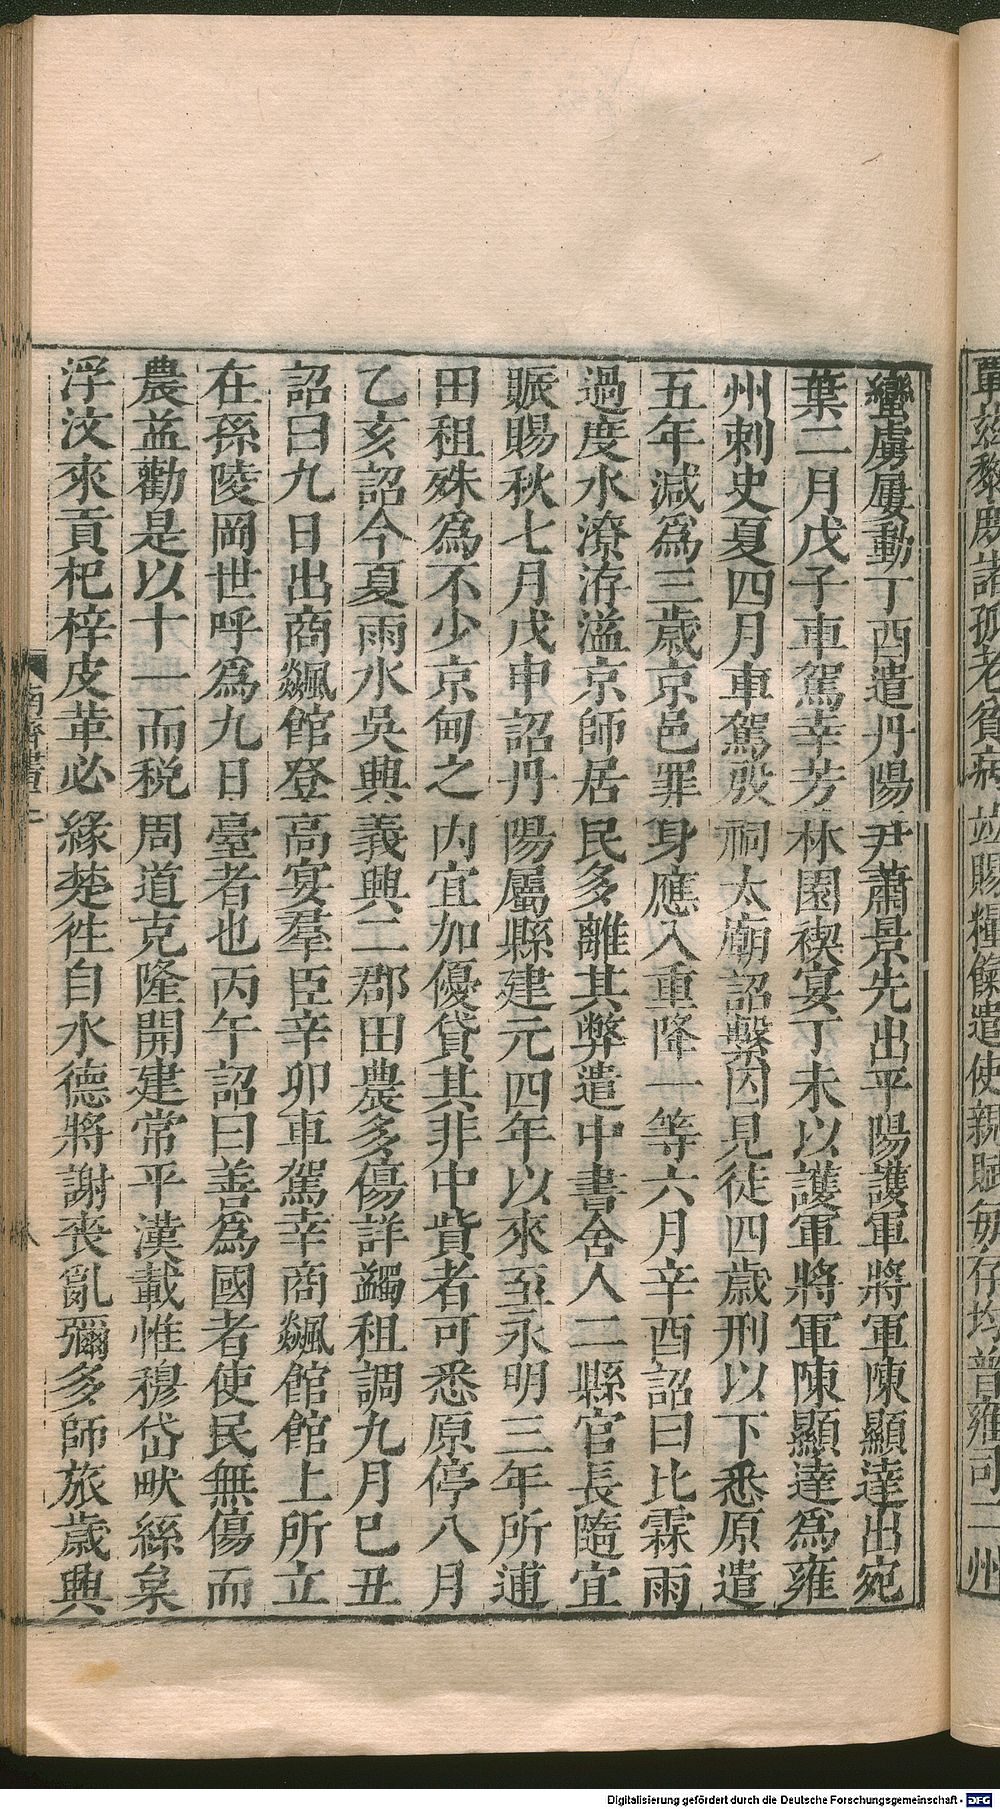 覃兹黎庶諸孤老貧病竝賜糧餼遣使親賦每存均普雍司二州
蠻虜屢動丁酉遣丹陽尹蕭景先出平陽護軍將軍陳顯達出宛
葉二月戊子車駕幸芳林園禊宴丁未以護軍將軍陳顯達爲雍
州刺史夏四月車駕殷祠太廟詔繫囚見徒四歲刑以下悉原遣
五年減爲三歲京邑罪身應入重降一等六月辛酉詔曰比霖雨
過度水潦洊溢京師居民多離其弊遣中書舍人二縣官長隨宜
賑賜秋七月戊申詔丹陽屬縣建元四年以來至永明三年所逋
田租殊爲不少京甸之內宜加優貸其非中貲者可悉原停八月
乙亥詔今夏雨水吳興義興二郡田農多傷詳蠲租調九月己丑
詔曰九日出商飈館登高宴羣臣辛卯車駕幸商飈館館上所立
在孫陵岡世呼爲九日臺者也丙午詔曰善爲國者使民無傷而
農益勸是以十一而稅周道克隆開建常平漢載惟穆岱畎絲枲
浮汶來貢杞梓皮革必緣楚徃自水德將謝喪亂彌多師旅歲興
南齊書
Digitalisierung gefördert durch die Deutsche Forschungsgemeinschaft - DFG